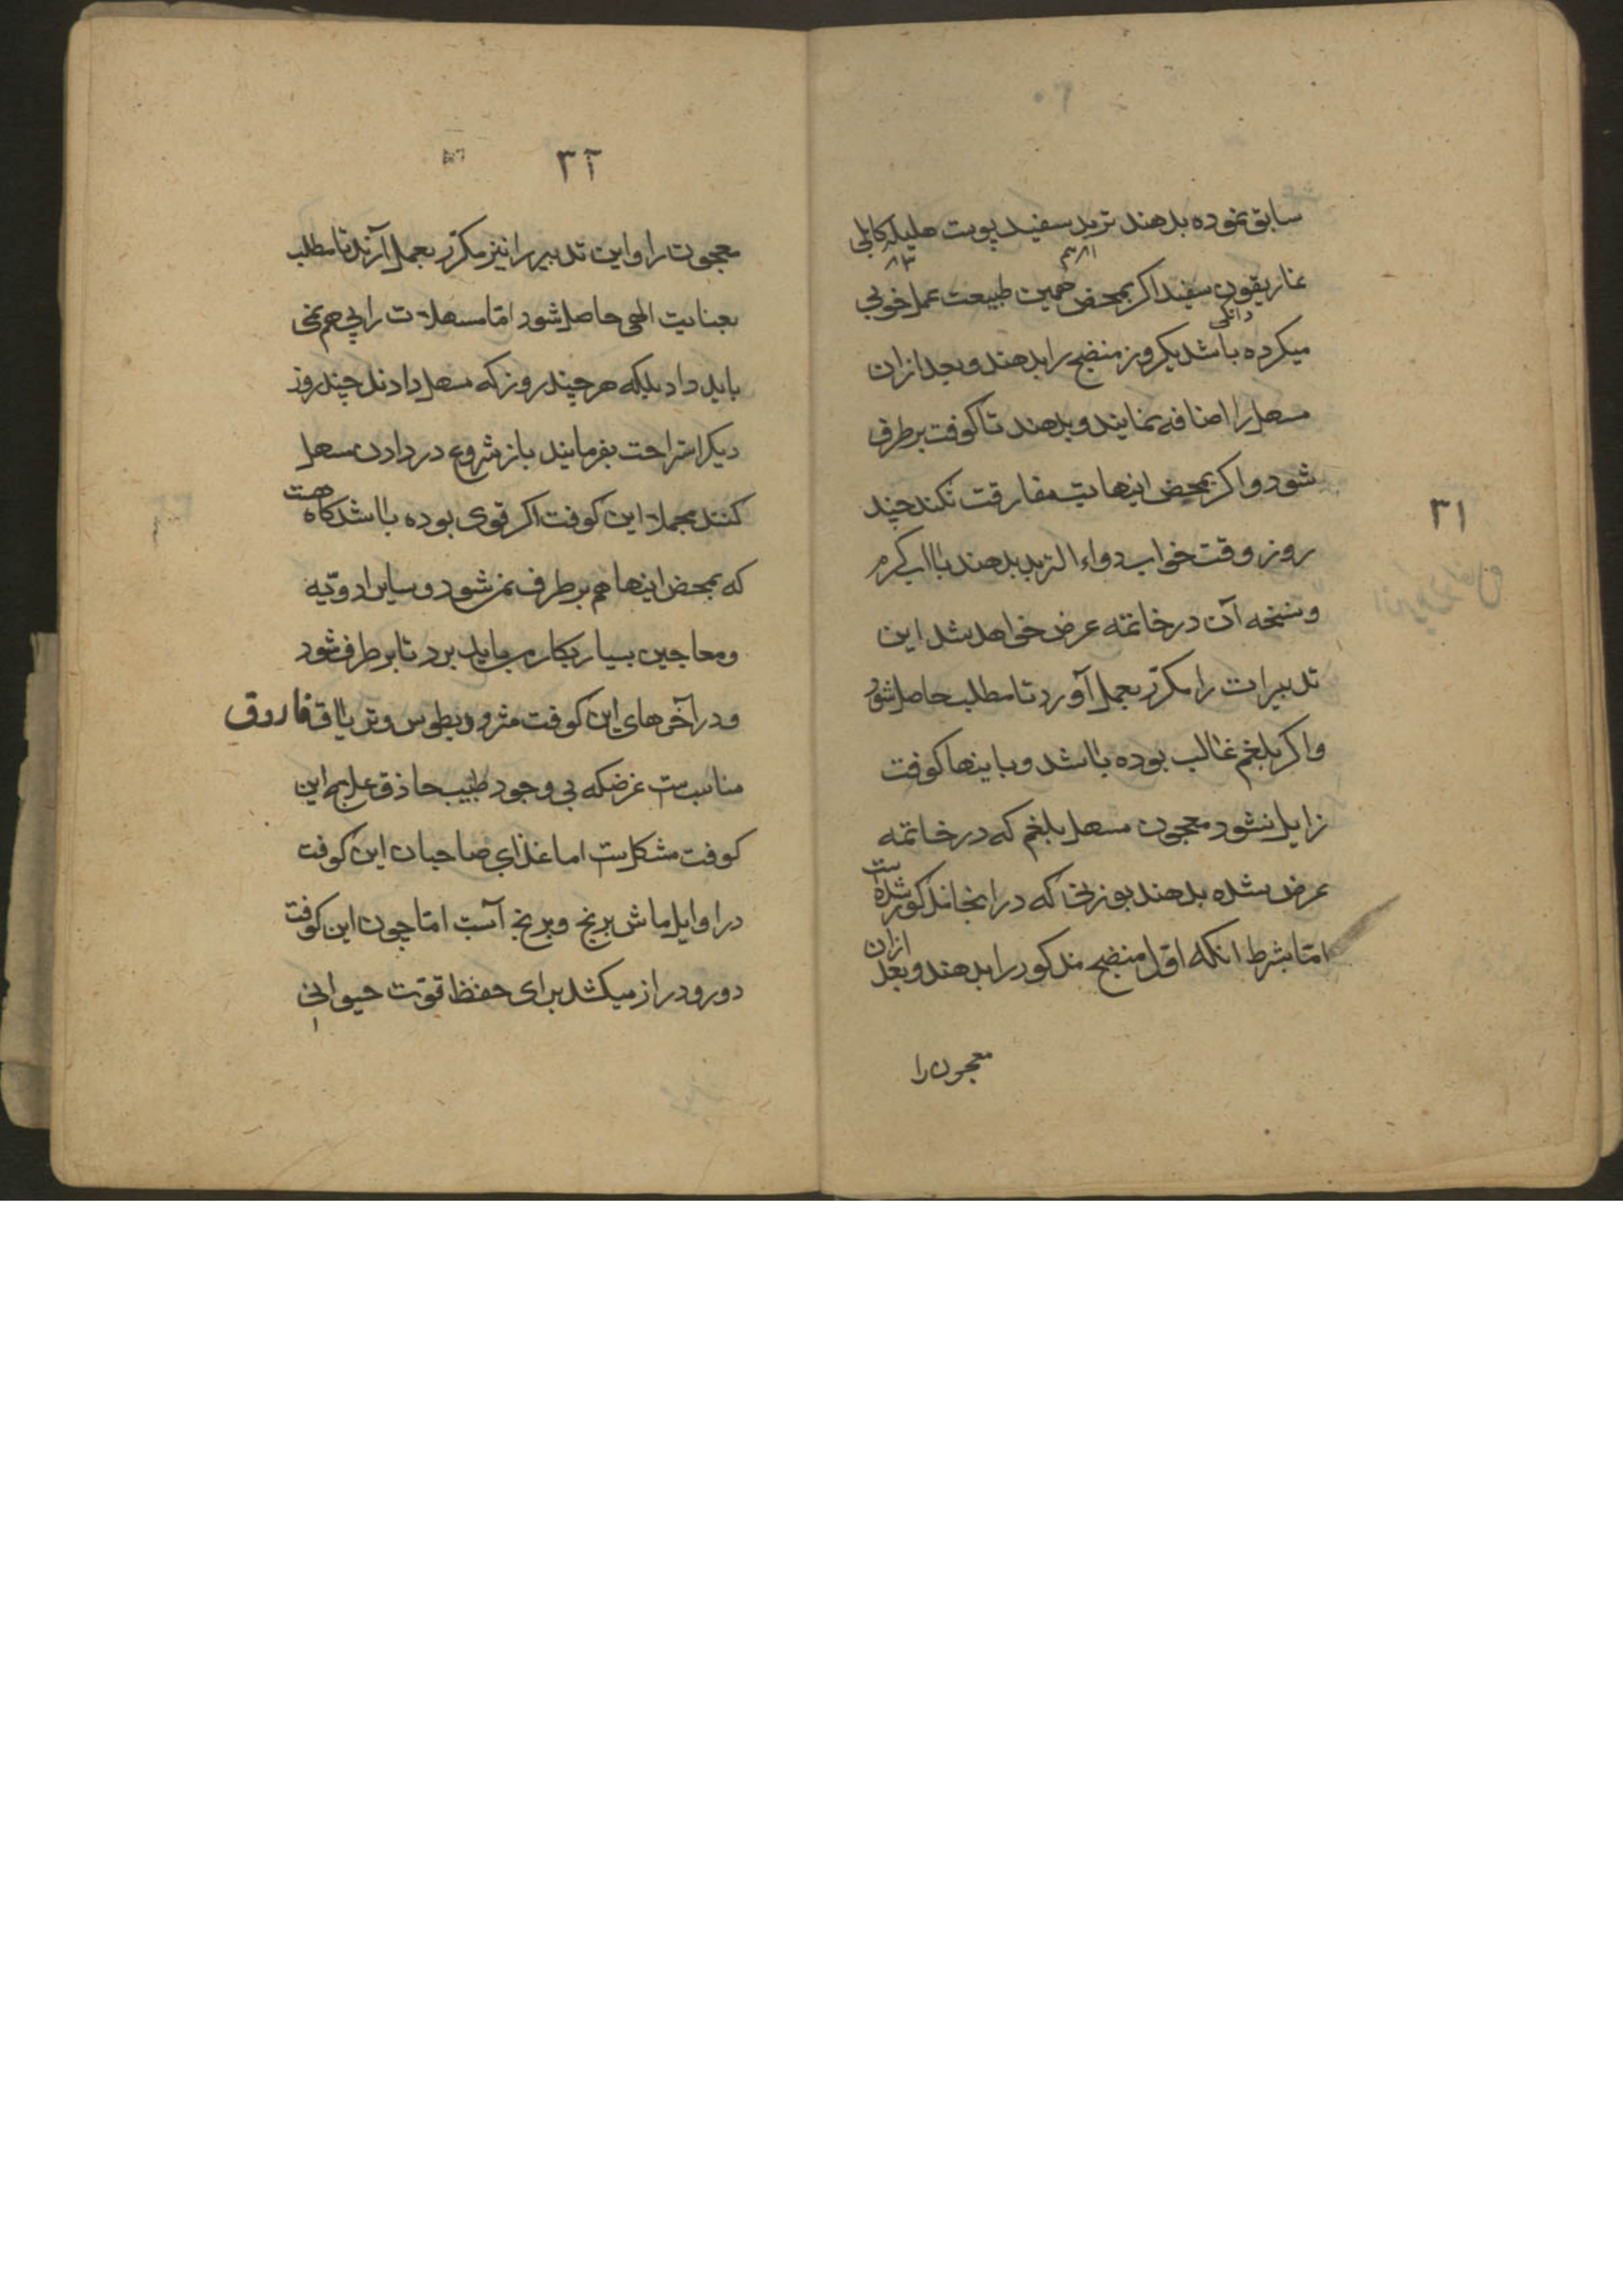 ۳۱
سابق نموده بدهند تربد سفید پوست هلیله کابلی
غاریقون سفید اکر بمحض همین طبیعت عمل خوبی
دانکی
میکرده باشد یکروز منضج را بدهند و بعد ازان
مسهل را اضافه نمایند و بدهند تا کوفت برطرف
شود و اکر بمحض اینها تب مفارقت نکند چند
روز وقت خواب دواء التربد بدهند با اب کرم
و نسخه آن در خاتمه عرض خواهد شد این
تدبیرات را مکرّر بعمل آورد تا مطلب حاصل شود
و اکر بلغم غالب بوده باشد و باینها کوفت
زایل نشود معجون مسهل بلغم که در خاتمه
عرض شده بدهند بوزنی که در انجا مذکور شده است
امّا بشرط انکه اوّل منضج مذکور را بدهند و بعد ازان
معجون را
۳۲
معجون را و این تدبیر را نیز مکرّر بعمل آرند تا مطلب
بعنایت الهی حاصل شود امّا مسهلات را پی هم نمی
باید داد بلکه هر چند روز که مسهل دادند چند روز
دیکر استراحت بفرمایند باز شروع در دادن مسهل
کنند مجملا این کوفت اکر قوی بوده باشد کاه هست
که بمحض اینها هم برطرف نمیشود و سایر ادویّه
و معاجین بسیار بکار می باید برد تا برطرف شود
و در آخرهای این کوفت مثرودیطوس و تریاق فاروق
مناسبست غرضکه بی وجود طبیب حاذق علاج این
کوفت مشکلست اما غذای صاحبان این کوفت
در اوایل ماش برنج و برنج آست امّا چون این کوفت
دور و دراز میکشد برای حفظ قوّت حیوانی